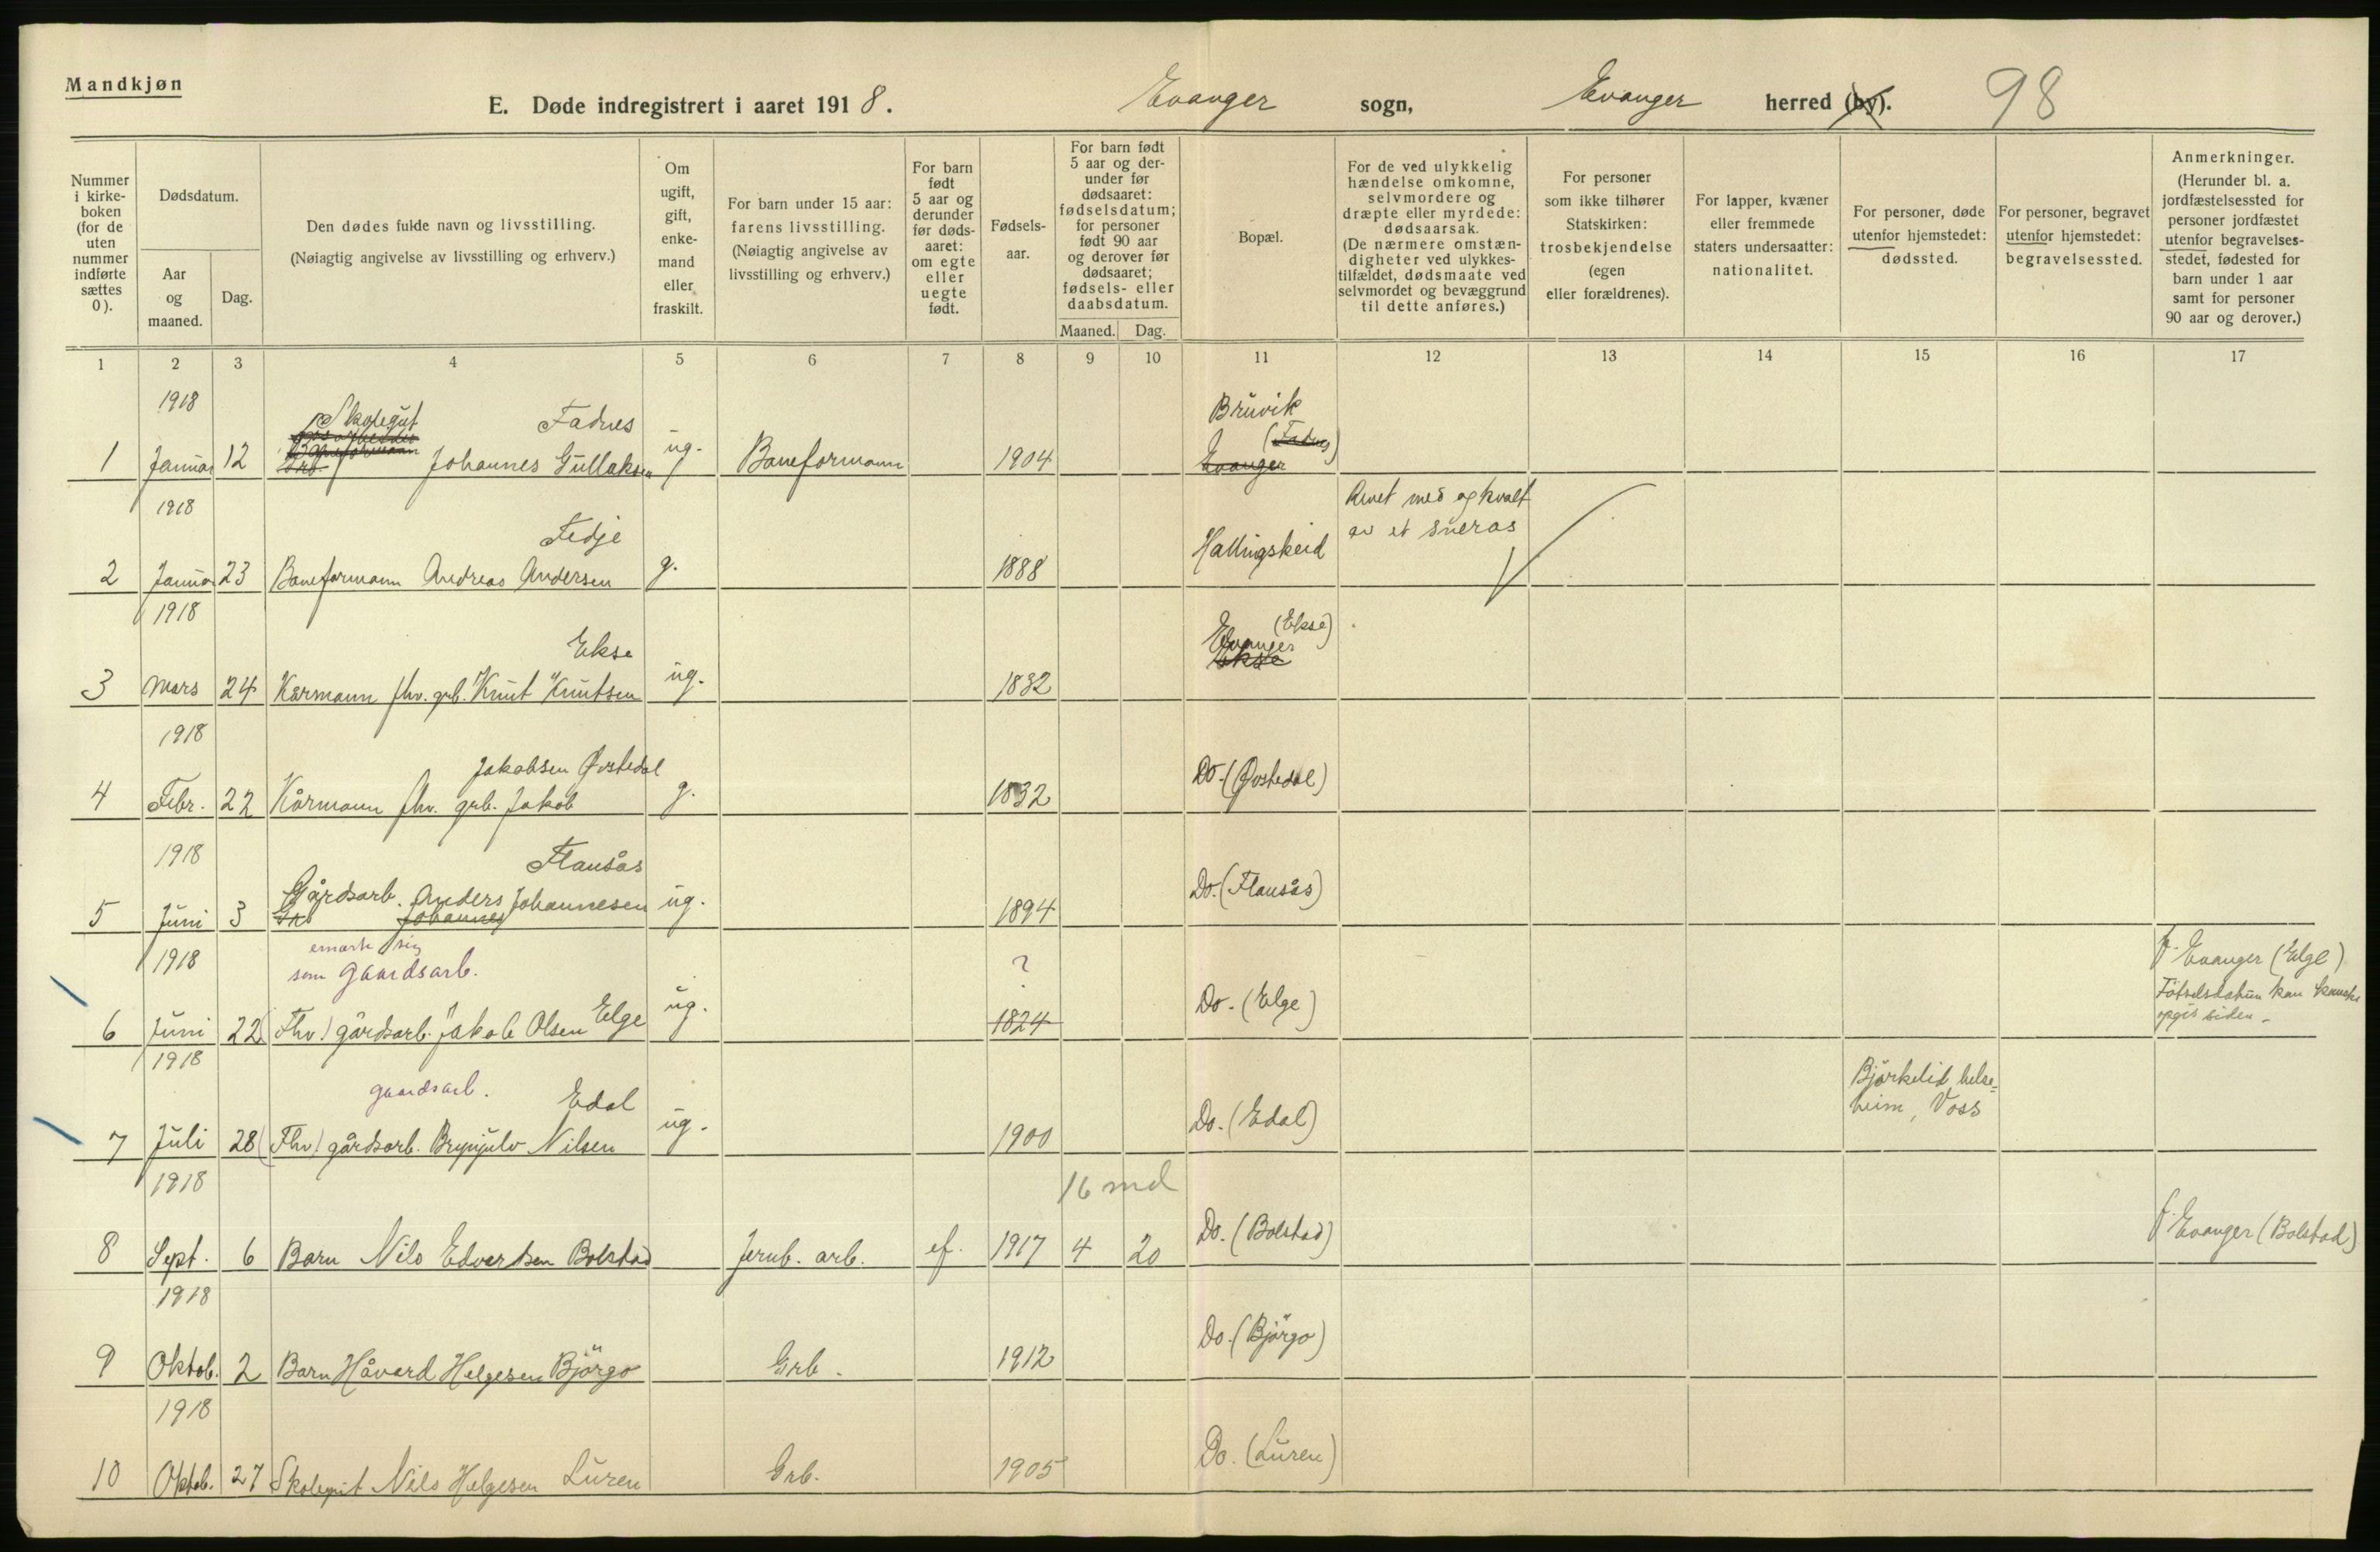 Mandkjøn
E. Døde indregistrert i aaret 1918. Evanger sogn, Evanger herred (by). 98
Nummer i kirke-boken (for de uten nummer indførte sættes 0).
Dødsdatum.
Aar og maaned.
Dag.
Den dødes fulde navn og livsstilling.
(Nøiagtig angivelse av livsstilling og erhverv.)
Om ugift, gift, enke-mand eller fraskilt.
For barn under 15 aar: farens livsstilling.
(Nøiagtig angivelse av livsstilling og erhverv.)
For barn født 5 aar og derunder før døds-aaret: om egte eller uegte født.
Fødsels-aar.
For barn født 5 aar og der-under før dødsaaret: fødselsdatum; for personer født 90 aar og derover før dødsaaret; fødsels- eller daabsdatum.
Maaned. Dag.
Bopæl.
For de ved ulykkelig hændelse omkomne, selvmordere og dræpte eller myrdede: dødsaarsak.
(De nærmere omstæn-digheter ved ulykkes-tilfældet, dødsmaate ved selvmordet og bevæggrund til dette anføres.)
For personer som ikke tilhører Statskirken: trosbekjendelse (egen eller forældrenes).
For lapper, kvæner eller fremmede staters undersaatter: nationalitet.
For personer, døde utenfor hjemstedet: dødssted.
For personer, begravet utenfor hjemstedet: begravelsessted.
Anmerkninger.
(Herunder bl. a. jordfæstelsessted for personer jordfæstet utenfor begravelses-stedet, fødested for barn under 1 aar samt for personer 90 aar og derover.)
1 2 3 4 5 6 7 8 9 10 11 12 13 14 15 16 17
1918 Skolegut Fadnes Bruvik
(Fadnes)
1 Januar 12 Johannes Gullaksen ug. Baneformann 1904 Evanger
1918 Fedje Revet med og kvalt
av et sneras
2 Januar 23 Baneformann Andreas Andersen g. 1888 Hallingskeid
1918 Ekse (Ekse)
Evanger
Ekse
3 Mars 24 Kårmann fhv. grb. Knut Knutsen ug. 1832
1918 Jakobsen Øvstedal
4 Febr. 22 Kårmann fhv. grb. Jakob g. 1832 Do. (Øvstedal)
1918 Flausås
Gårdsarb. Anders Johannesen
5 Juni 3 Johannes ug. 1894 Do. (Flausås)
1918 sig
som gaardsarb. ? f. Evanger (Elge)
6 Juni 22 (Fhv) gårdsarb. Jakob Olsen Elge ug. 1824 Do. (Elge) Fötselsdatum kan kanske
opgis siden.
1918 gaardsarb. Edal Björkelid helse-
heim, Voss
7 Juli 28 (Fhv) gårdsarb. Brynjulv Nilsen ug. 1900 Do. (Edal)
1918 16 md
8 Sept. 6 Barn Nils Edvardsen Bolstad Jernb. arb. ef. 1917 4 20 Do. (Bolstad) f. Evanger (Bolstad)
1918
9 Oktob. 2 Barn Håvard Helgesen Björgo Grb. 1912 Do. (Björgo)
1918
10 Oktob. 27 Skolegut Nils Helgesen Luren Grb. 1905 Do. (Luren)